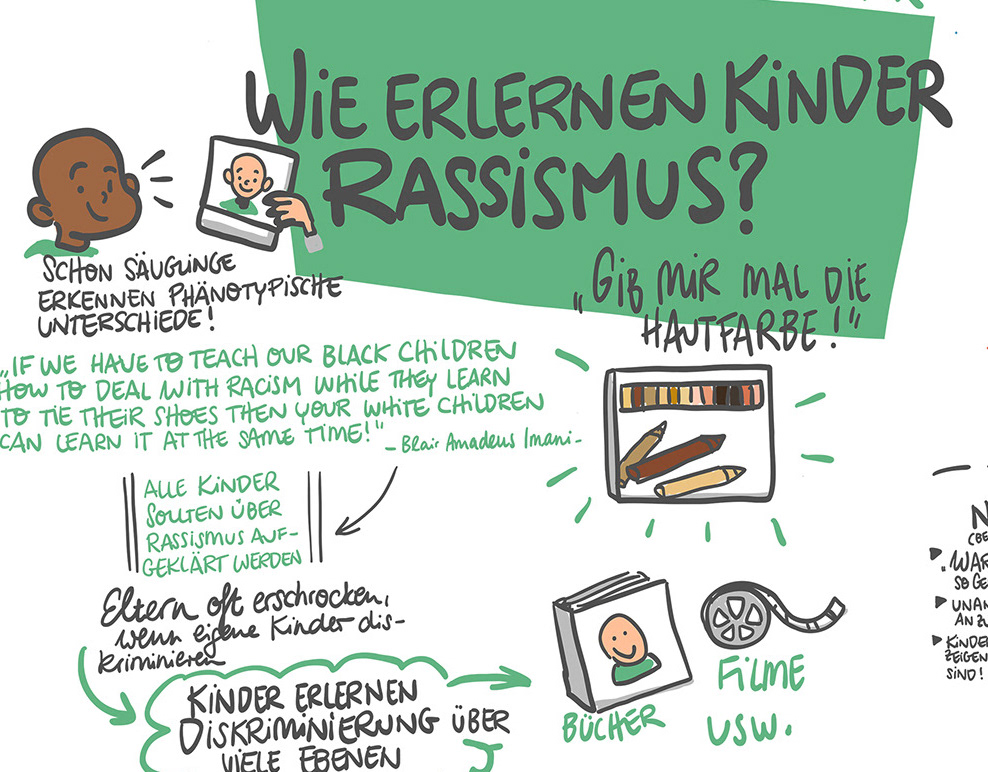 WIE ERLERNEN KINDER
RASSISMUS?
SCHON SÄUGLINGE
ERKENNEN PHÄNOTYPISCHE
UNTERSCHIEDE!
„GIB MIR MAL DIE
HAUTFARBE!“
„IF WE HAVE TO TEACH OUR BLACK CHILDREN
HOW TO DEAL WITH RACISM WHILE THEY LEARN
TO TIE THEIR SHOES THEN YOUR WHITE CHILDREN
CAN LEARN IT AT THE SAME TIME!“
- Blair Amadeus Imani -
ALLE KINDER
SOLLTEN ÜBER
RASSISMUS AUF-
GEKLÄRT WERDEN
Eltern oft erschrocken,
wenn eigene Kinder dis-
kriminieren
KINDER ERLERNEN
DISKRIMINIERUNG ÜBER
VIELE EBENEN
BÜCHER
FILME
USW.
SIND!